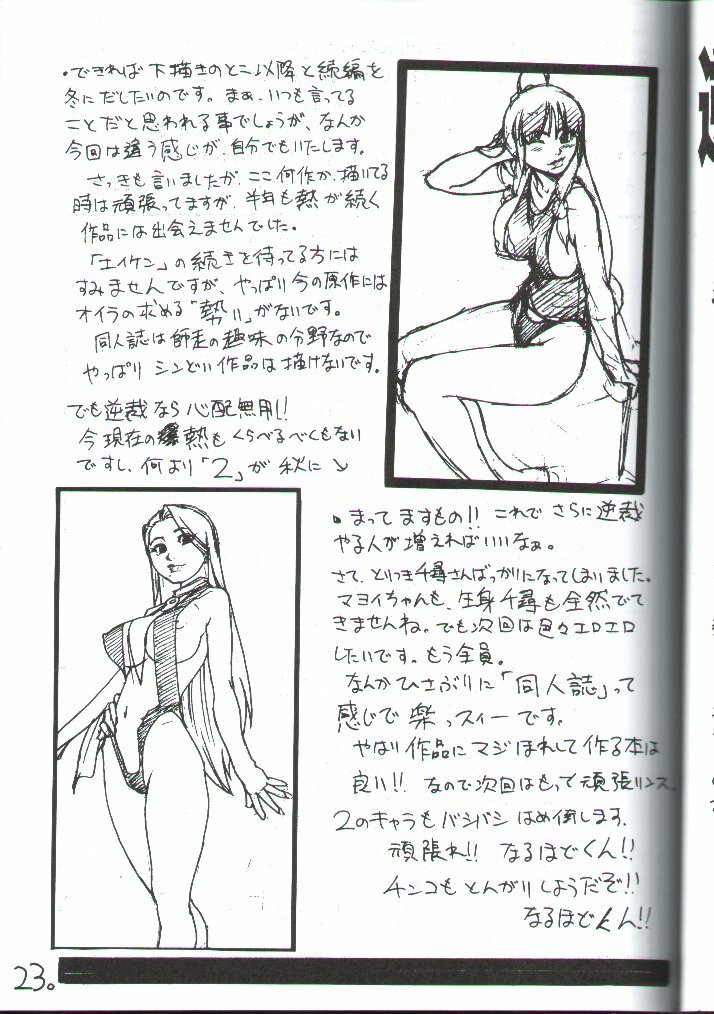 ・できれば下描きのとこ以降と続編を
冬にだしたいのです。まぁ、いつも言ってる
ことだと思われる事でしょうが、なんか
今回は違う感じが、自分でもいたします。
さっきも言いましたが、ここ何作か、描いてる
時は頑張ってますが、半年も熱が続く
作品には出会えませんでした。
「エイケン」の続きを待ってる方には
すみませんですが、やっぱり今の原作には
オイラの求める「勢い」がないです。
同人誌は師走の趣味の分野なので
やっぱり シンどい作品は描けないです。
でも逆裁なら心配無用!!
今現在の熱もくらべるべくもない
ですし、何より「2」が秋に↘
・まってますもの!! これでさらに逆裁
やる人が増えればいいなぁ。
さて、とりつき千尋さんばっかりになってしまいました。
マヨイちゃんも、生身千尋も全然でて
きませんね。でも次回は色々エロエロ
したいです。もう全員。
なんかひさぶりに「同人誌」って
感じで楽っスィーです。
やはり作品にマジほれして作る本は
良い!! なので次回はもって頑張リンス
2のキャラもバシバシはめ倒します。
頑張れ!! なるほどくん!!
チンコもとんがりしようだぞ!!
なるほどくん!!
23。